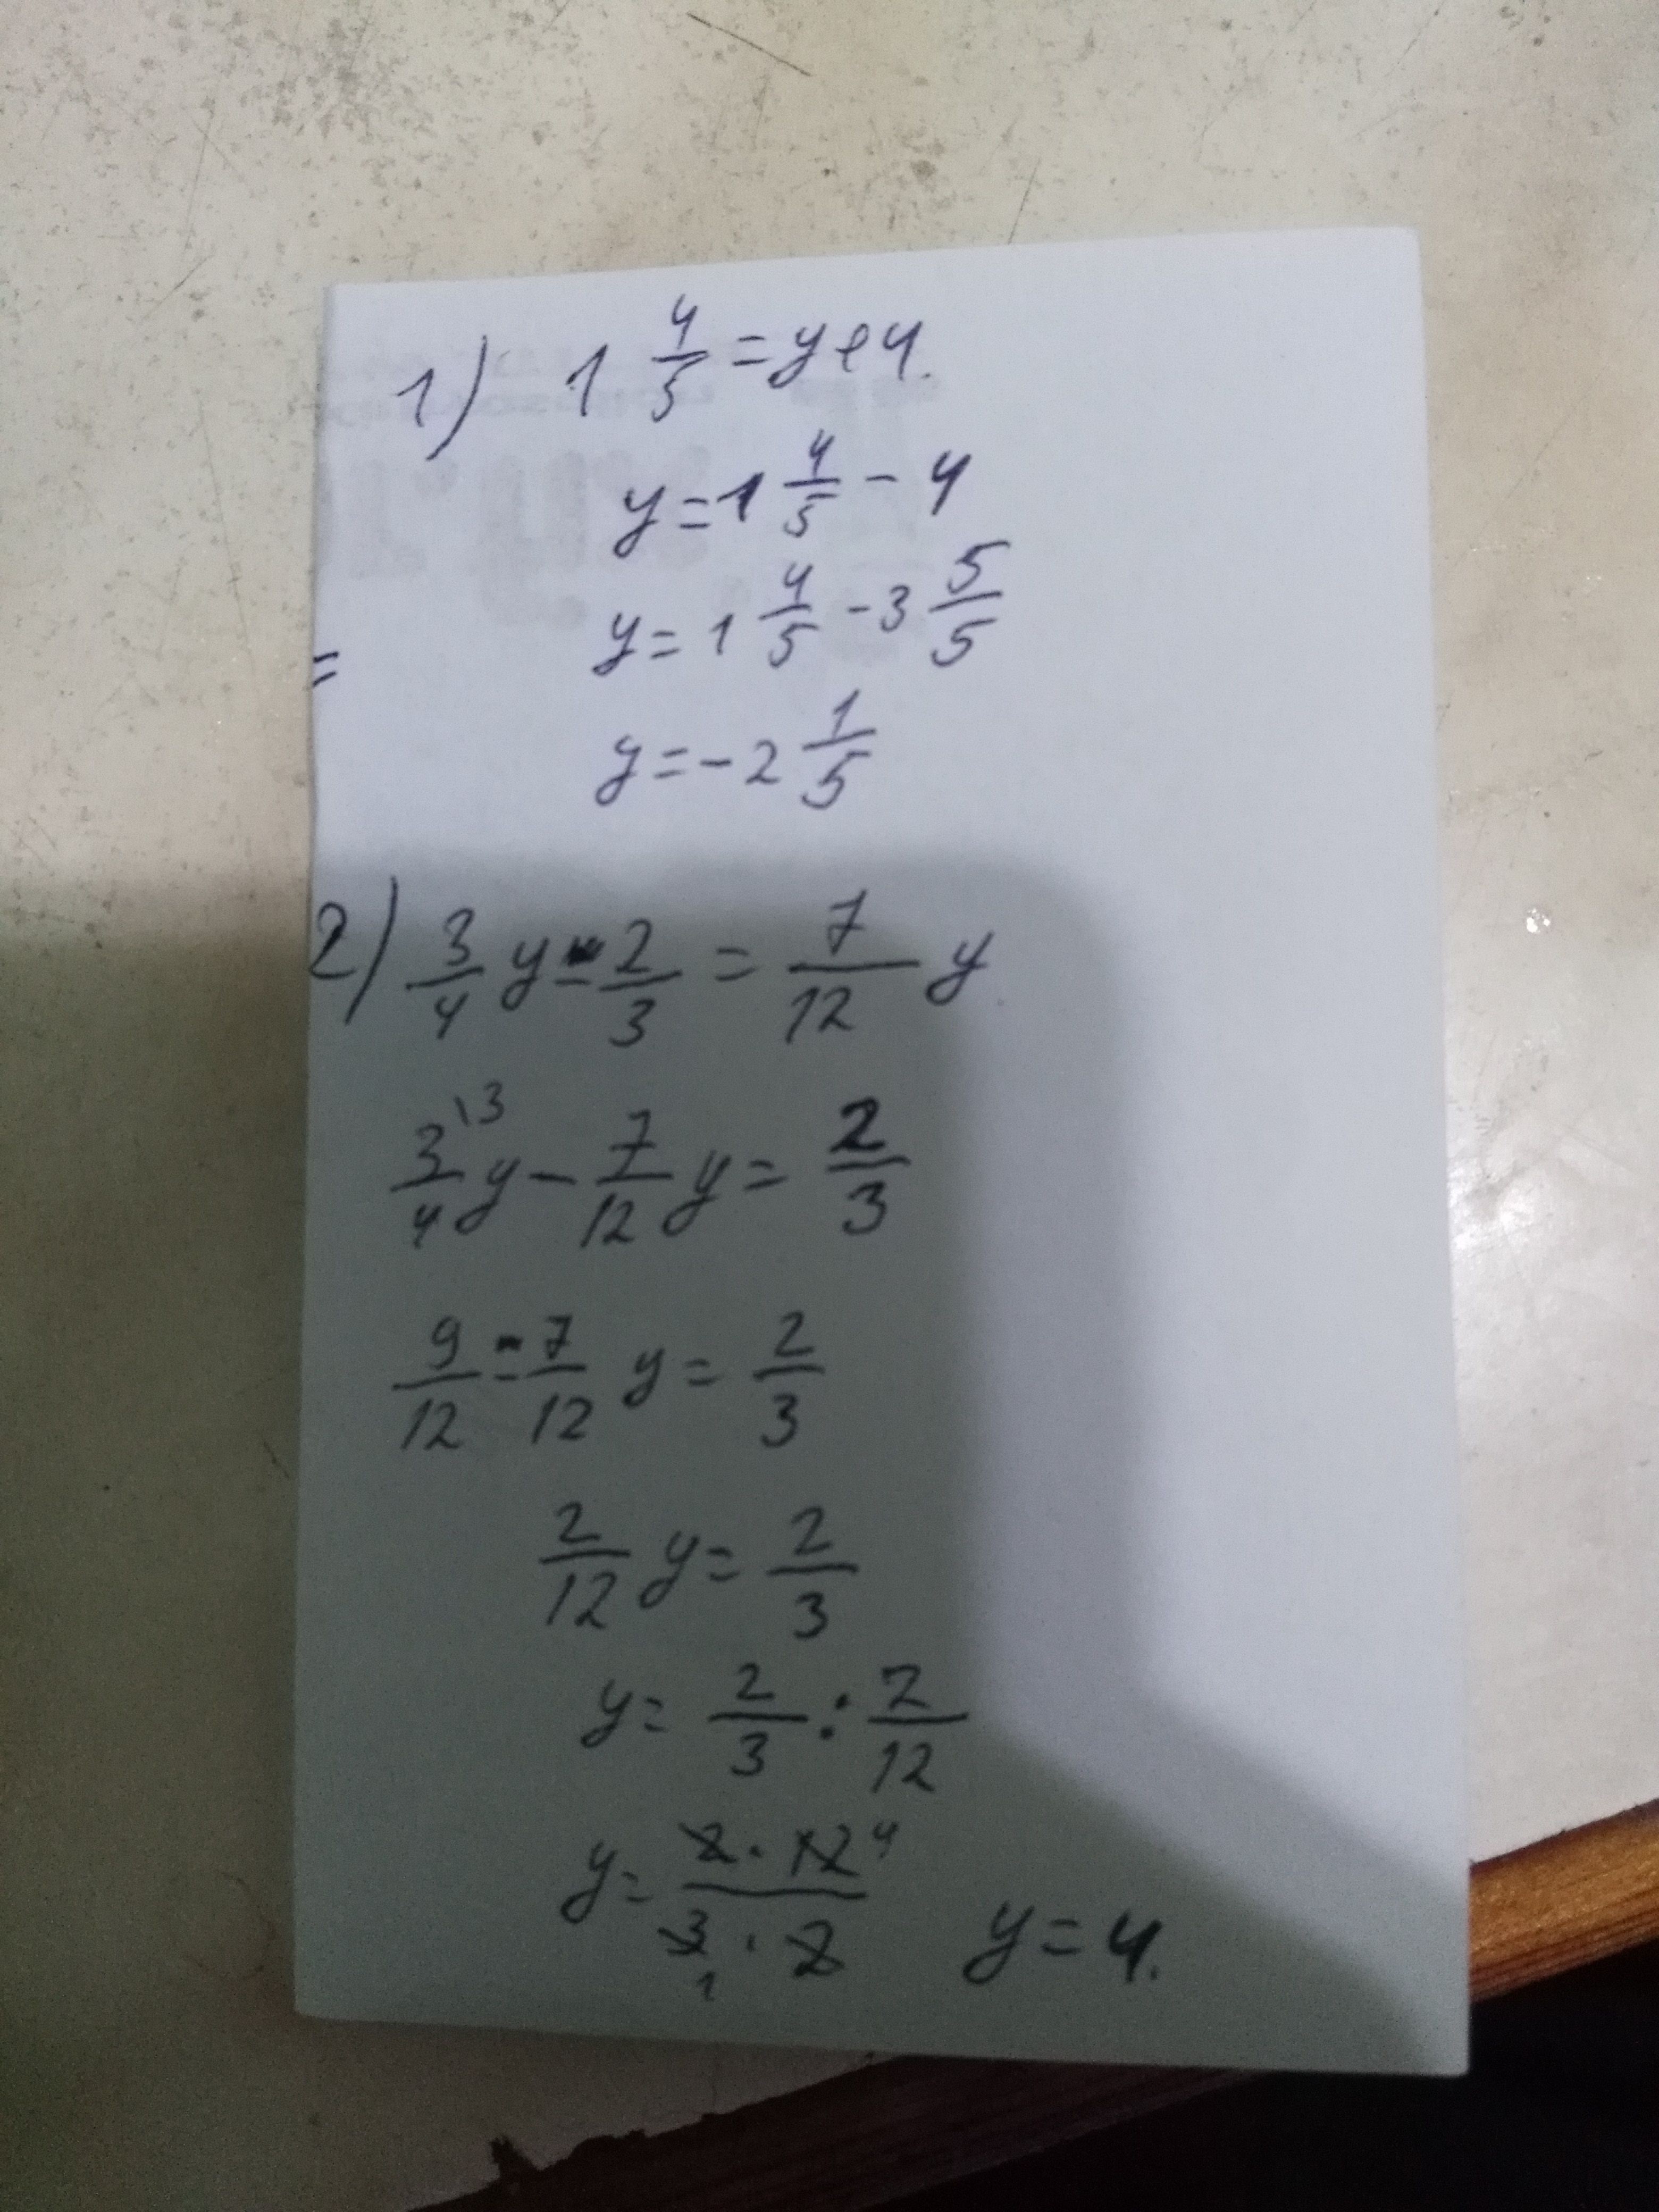 1) 1 4/5 = y + 4.
y = 1 4/5 - 4
y = 1 4/5 - 3 5/5
=
y = -2 1/5
2) 3/4 y - 2/3 = 7/12 y
3/4 \3 y - 7/12 y = 2/3
9/12 - 7/12 y = 2/3
2/12 y = 2/3
y = 2/3 : 2/12
y = 2 · 12 4 / 3 1 · 2 y = 4.